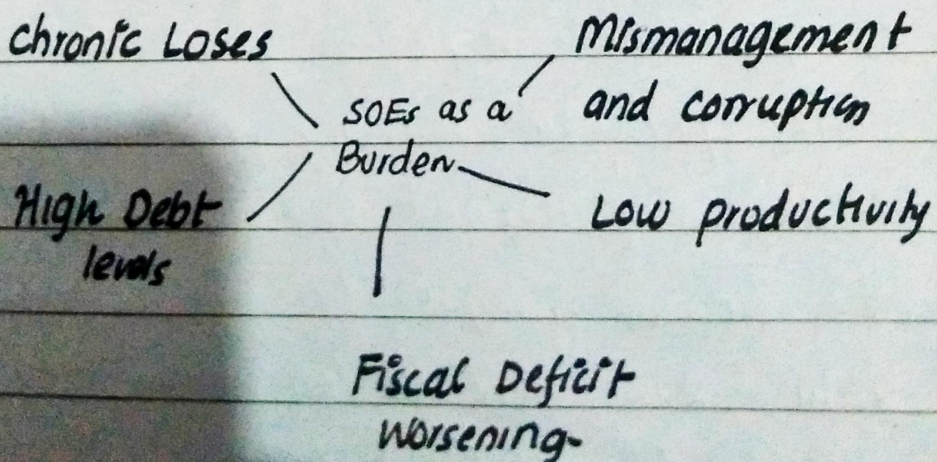 Chronic Loses
Mismanagement
and corruption
SOEs as a
Burden
High Debt
levels
Low productivity
Fiscal Deficit
Worsening-